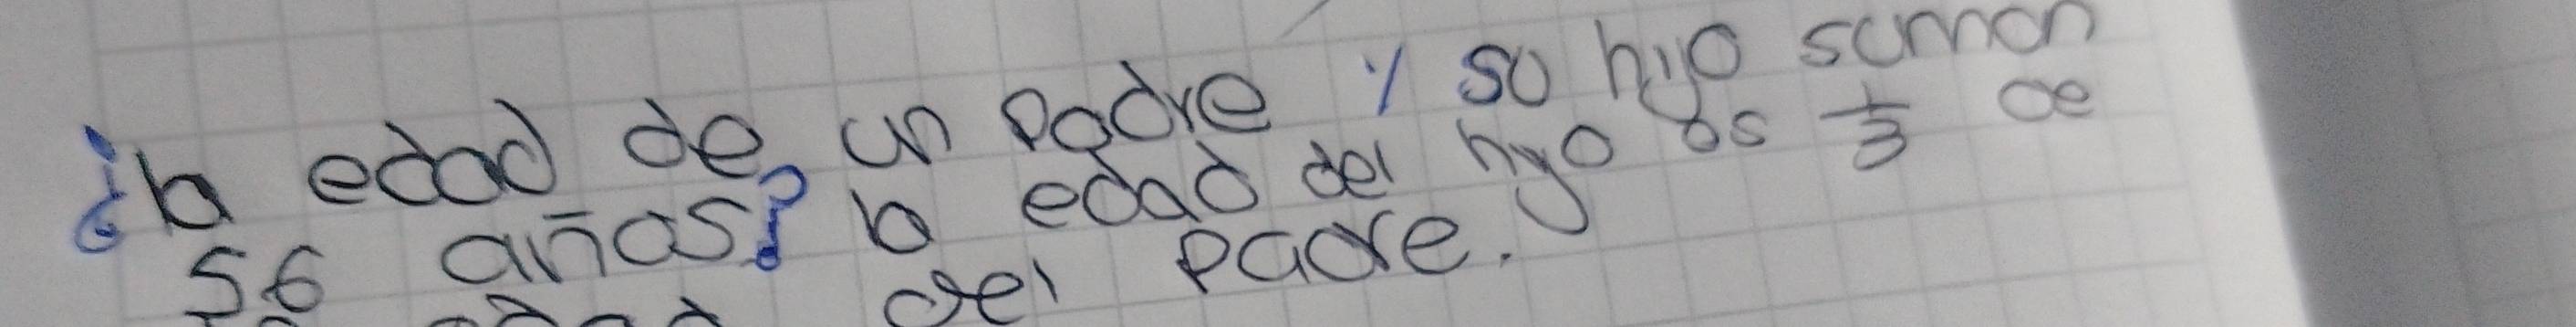 ¿la edad de un padre y su hijo suman
56 años? la edad del hijo es 1/3 de
la edad del padre.